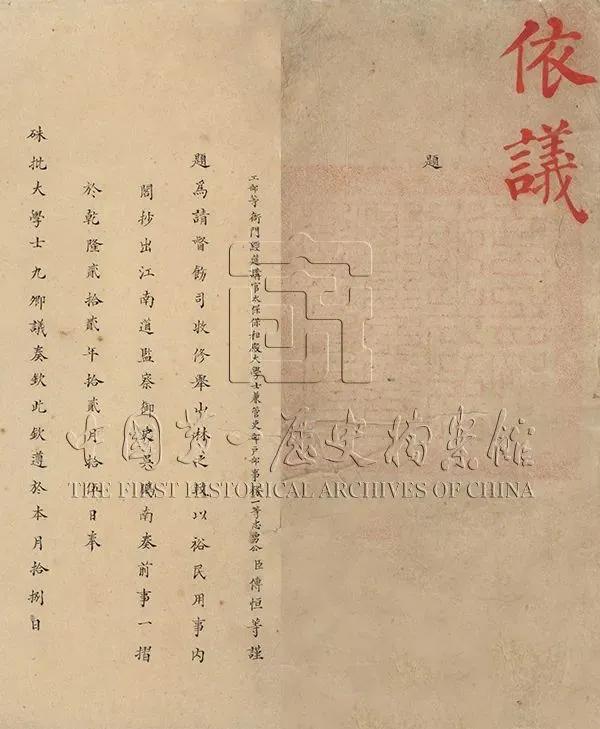 依議
題
工部等衙門經筵講官太保保和殿大學士兼管吏部戶部事務一等忠勇公臣傅恒等謹
題爲請督飭司牧修舉山林之以裕民用事内
閣抄出江南道監察御史吳鵬南奏前事一摺
於乾隆貳拾貳年拾貳月拾日奉
硃批大學士九卿議奏欽此欽遵於本月拾捌日
中国第一历史档案馆
THE FIRST HISTORICAL ARCHIVES OF CHINA